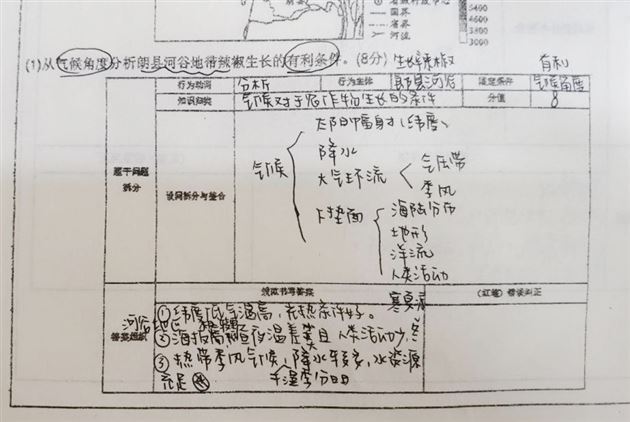 国界
省界
河流
5400
4600
3800
3000
(1)从气候角度分析朗县河谷地带辣椒生长的有利条件。(8分) 生长辣椒
有利
行为动词 分析 行为主体 朗县河谷 限定条件 气候角度
知识归类 气候对于农作物生长的条件 分值 8
题干问题拆分
设问拆分与整合
气候
太阳辐射(纬度)
降水
大气环流
气压带
季风
下垫面
海陆分布
地形
洋流
人类活动
规范书写答案
(红笔)错误纠正
答案组织
河谷地区
①纬度低,气温高,光热条件好。
②海拔高,昼夜温差大且人类活动少,
③热带季风气候,降水较多,水资源充足
干湿季分明